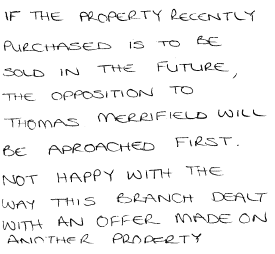 IF THE PROPERTY RECENTLY
PURCHASED IS TO BE
SOLD IN THE FUTURE,
THE OPPOSITION TO
THOMAS MERRIFIELD WILL
BE APROACHED FIRST.
NOT HAPPY WITH THE
WAY THIS BRANCH DEALT
WITH AN OFFER MADE ON
ANOTHER PROPERTY